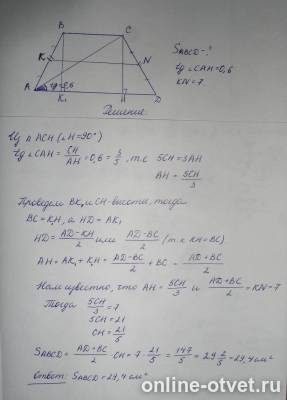 B
C
K
N
A
tg=0,6
K₁
H
D
S_ABCD - ?
tg ∠CAH = 0,6
KN = 7.
Решение.
Из △ ACH (∠H=90°)
tg ∠CAH = CH/AH = 0,6 = 3/5, т.е 5CH = 3AH
AH = 5CH/3
Проведем BK₁ и CH - высоты, тогда
BC = K₁H, а HD = AK₁
HD = AD-KH/2 или AD-BC/2 (т.к KH=BC)
AH = AK₁ + K₁H = AD-BC/2 + BC = AD+BC/2
Нам известно, что AH = 5CH/3 и AD+BC/2 = KN = 7
Тогда 5CH/3 = 7
5CH = 21
CH = 21/5
S_ABCD = AD+BC/2 · CH = 7 · 21/5 = 147/5 = 29 2/5 = 29,4 см²
Ответ: S_ABCD = 29,4 см²
online-otvet.ru